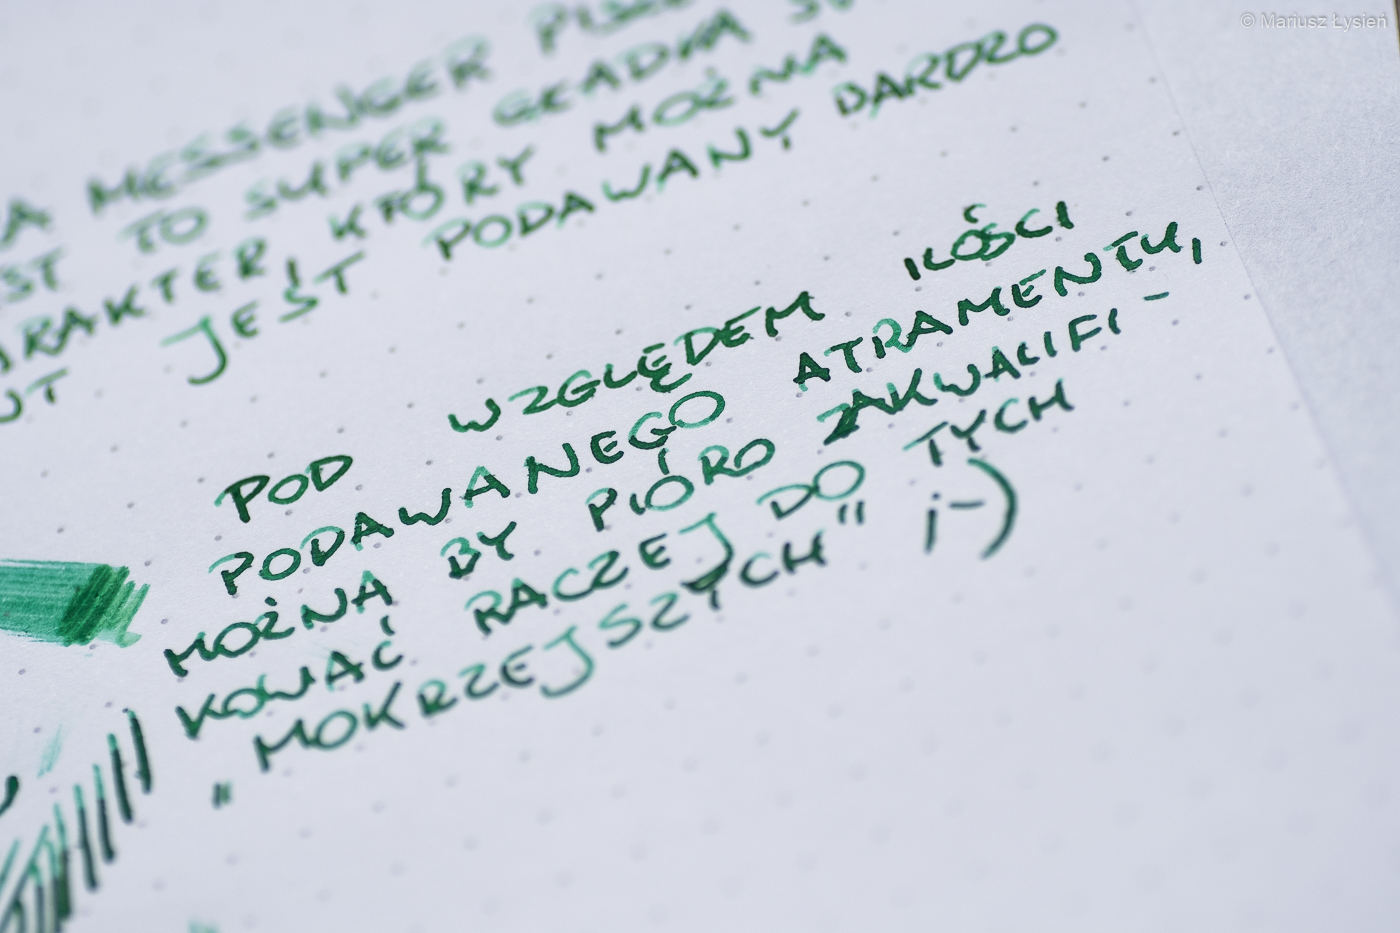 © Mariusz Łysień
A MESSENGER
ST TO SUPER GŁADKA
ARAKTER, KTÓRY MOŻNA
UT JEST PODAWANY BARDZO
POD WZGLĘDEM ILOŚCI
PODAWANEGO ATRAMENTU,
MOŻNA BY PIÓRO ZAKWALIFI-
KOWAĆ RACZEJ DO TYCH
„MOKRZEJSZYCH" ;-)